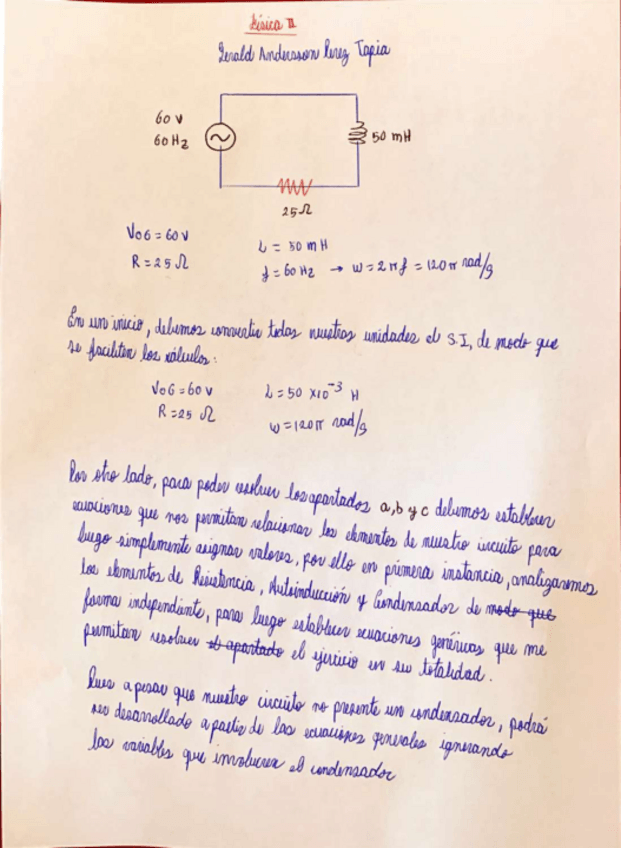 Física II
Gerald Andersson Perez Tapia
60 V
60 Hz
50 mH
25 Ω
V0G = 60 V
R = 25 Ω
L = 50 mH
f = 60 Hz → w = 2πf = 120π rad/s
En un inicio, debemos convertir todas nuestras unidades al S.I, de modo que
se faciliten los cálculos:
V0G = 60 V
R = 25 Ω
L = 50 x10⁻³ H
w = 120π rad/s
Por otro lado, para poder resolver los apartados a, b y c debemos establecer
ecuaciones que nos permitan relacionar los elementos de nuestro circuito para
luego simplemente asignar valores, por ello en primera instancia, analizaremos
los elementos de Resistencia, Autoinducción y Condensador de modo que
forma independiente, para luego establecer ecuaciones genéricas que me
permitan resolver el apartado el ejercicio en su totalidad.
Pues a pesar que nuestro circuito no presente un condensador, podrá
ser desarrollado a partir de las ecuaciones generales ignorando
las variables que involucren el condensador